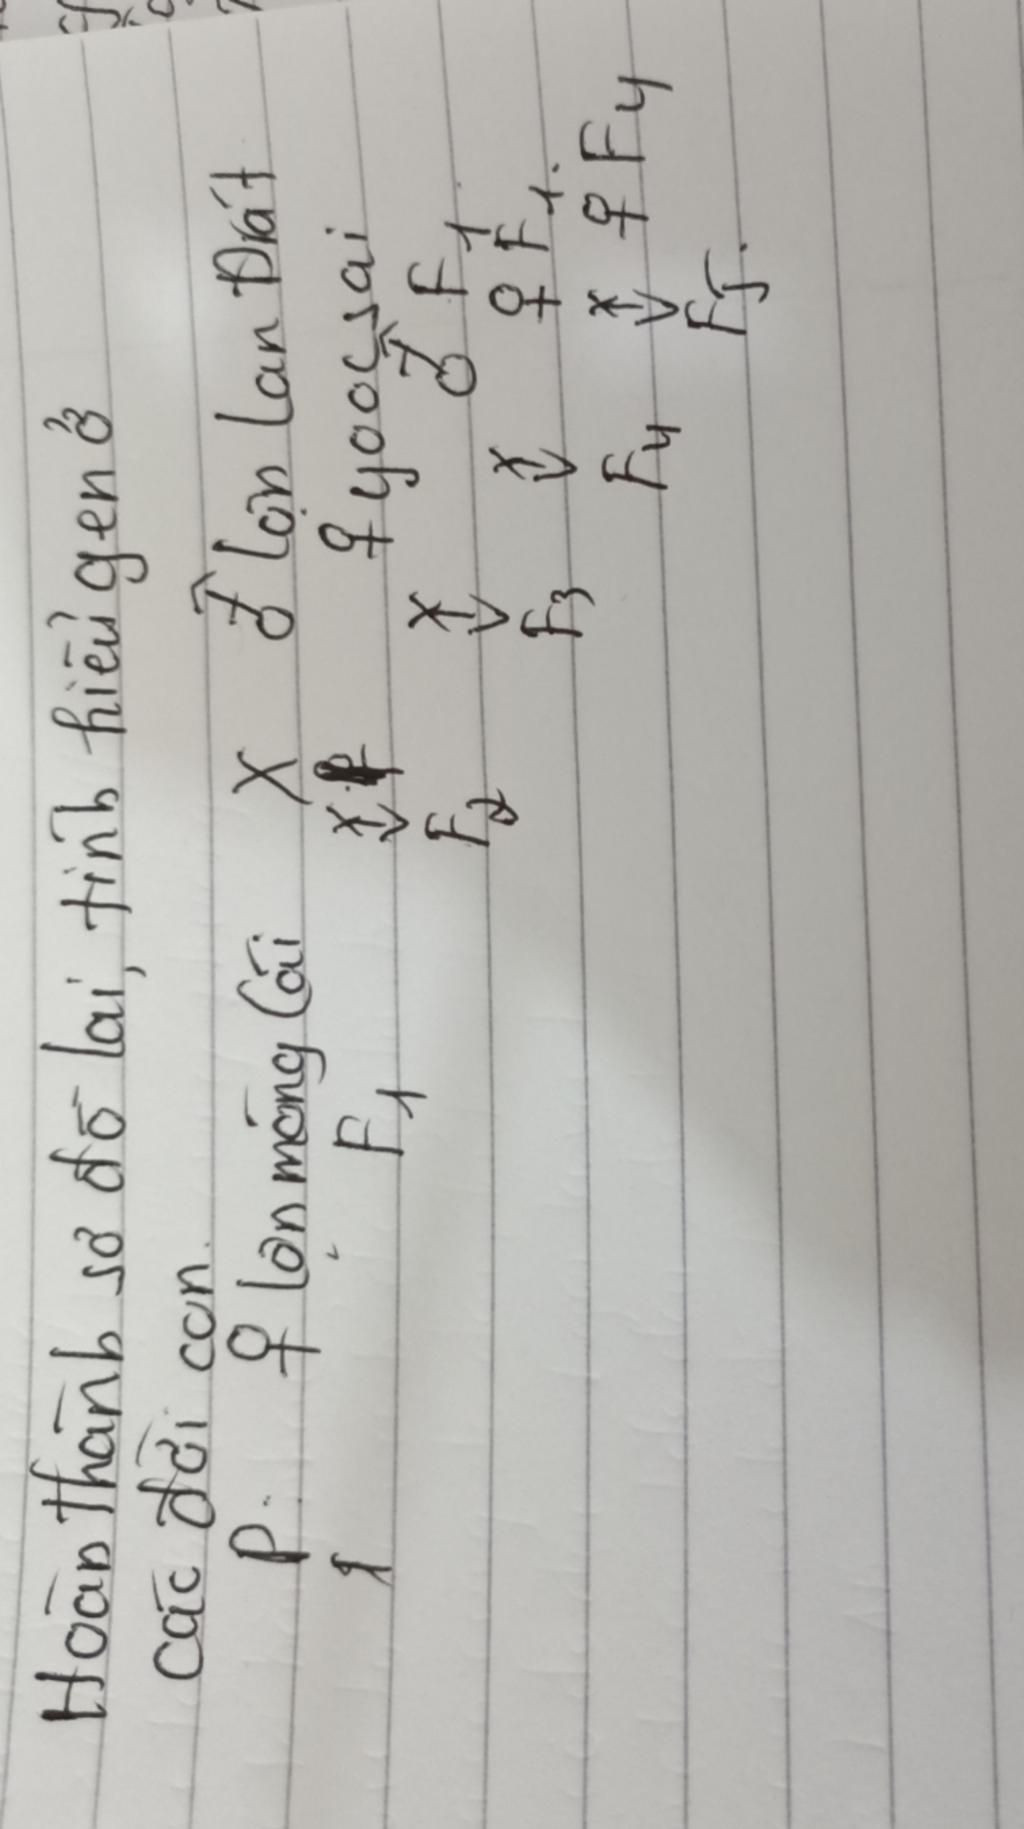 Hoàn thành sơ đồ lai, tính hiếu gen ở
các đời con.
P. ♀ lợn móng Cái X ♂ lợn lan Đrát
1 F1 x ♀ yoocsai
F2 x ♂ F1
F3 x ♀ F1.
F4 x ♀ F4
F5.